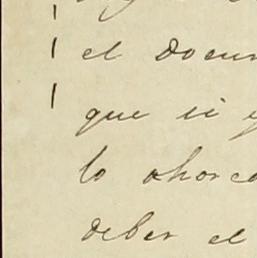 el docum
que si
lo ahorca
deber el